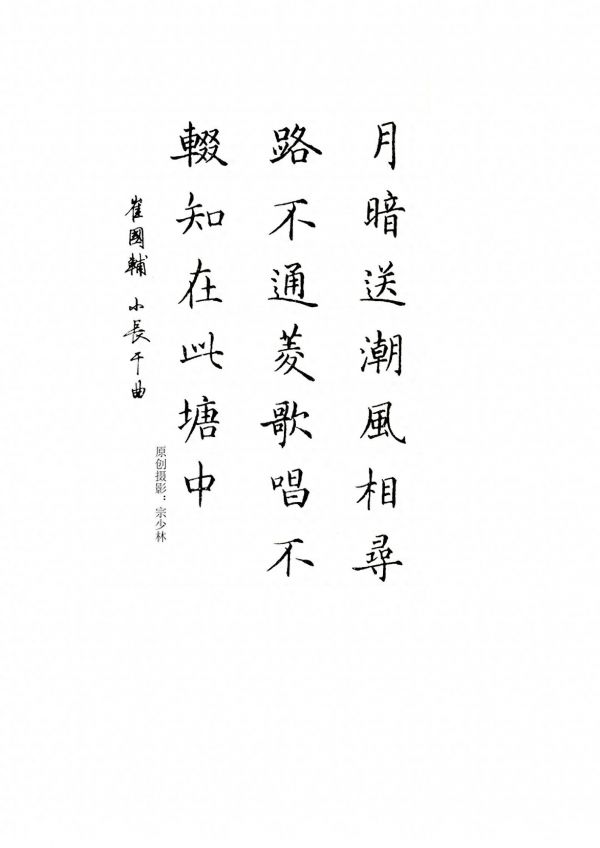 月暗送潮風相尋
路不通菱歌唱不
輟知在此塘中
崔國輔 小長干曲
原创摄影：宗少林